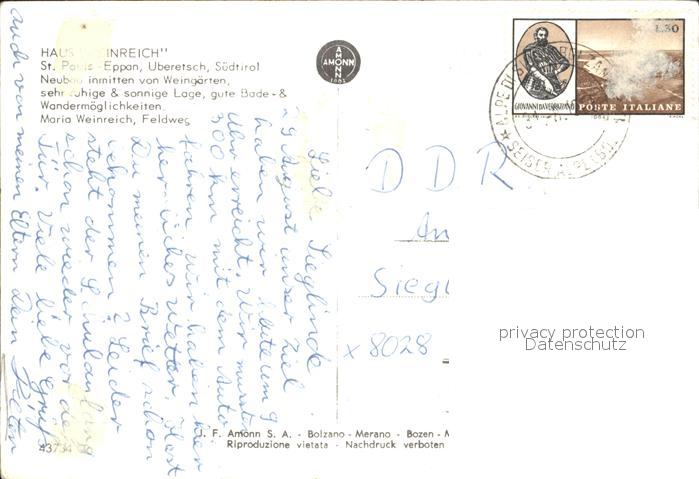 HAUS "WEINREICH"
St. Pauls-Eppan, Überetsch, Südtirol
Neubau inmitten von Weingärten,
sehr ruhige & sonnige Lage, gute Bade- &
Wandermöglichkeiten.
Maria Weinreich, Feldweg
AMONN
AMONN
1802
L.30
GIOVANNI DA VERRAZZANO
POSTE ITALIANE
ALPE DI
SEISER ALPE (BO)
Liebe Sieglinde
29. August unser Ziel
haben wir heute um 9
Uhr erreicht. Wir mussten
300 km mit dem Auto
fahren. Wir haben hier
herrliches Wetter. Hast
Du meinen Brief schon
bekommen? Leider
steht der Schulanfang
schon wieder vor der
Tür. Viele liebe Grüße
auch von meinen Eltern Dein
DDR.
An
Siegl
x 8028
privacy protection
Datenschutz
J. F. Amonn S. A. - Bolzano - Merano - Bozen - M
43734 Riproduzione vietata - Nachdruck verboten